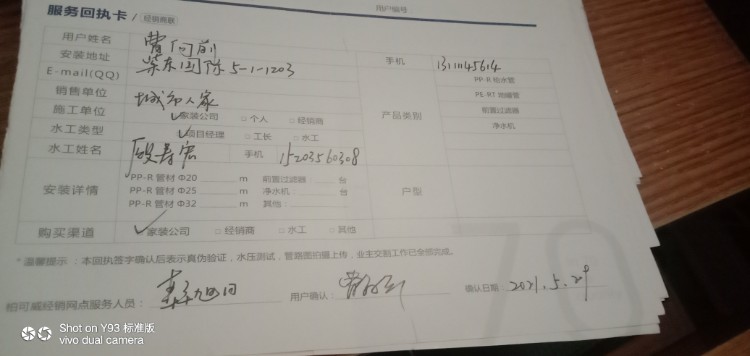 服务回执卡 / 经销商联 用户编号
用户姓名 曹向前
安装地址 5-1-1203 手机 1311045614
E-mail(QQ) PP-R 给水管
销售单位 城市人家 PE-RT 地暖管
施工单位 ✓家装公司 □ 个人 □ 经销商 产品类别 前置过滤器
水工类型 ✓项目经理 □ 工长 □ 水工 净水机
水工姓名 手机 15203560308
安装详情 PP-R 管材 Φ20 m 前置过滤器: 台 户型
PP-R 管材 Φ25 m 净水机: 台
PP-R 管材 Φ32 m 其他:
购买渠道 ✓家装公司 □ 经销商 □ 水工 □ 其他
* 温馨提示 : 本回执签字确认后表示真伪验证，水压测试，管路图拍摄上传，业主交割工作已全部完成。
柏可威经销网点服务人员: 用户确认: 确认日期: 2021.5.29
Shot on Y93 标准版
vivo dual camera